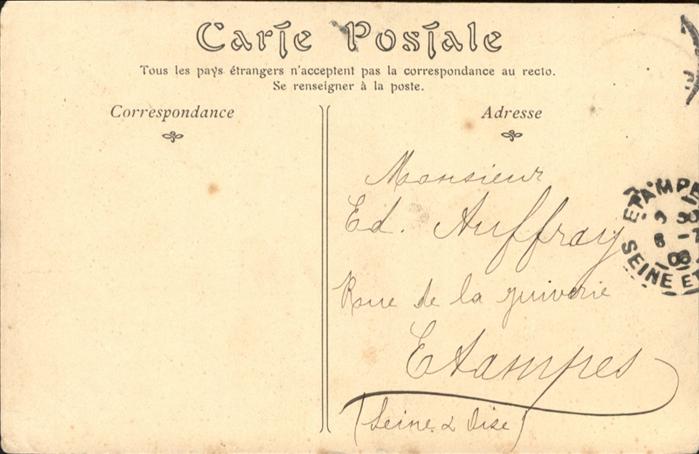 Carte Postale
Tous les pays étrangers n'acceptent pas la correspondance au recto.
Se renseigner à la poste.
Correspondance
Adresse
Monsieur
Ed. Auffray
Rue de la Juiverie
Etampes
(Seine & Oise)
ETAMPE
SEINE ET